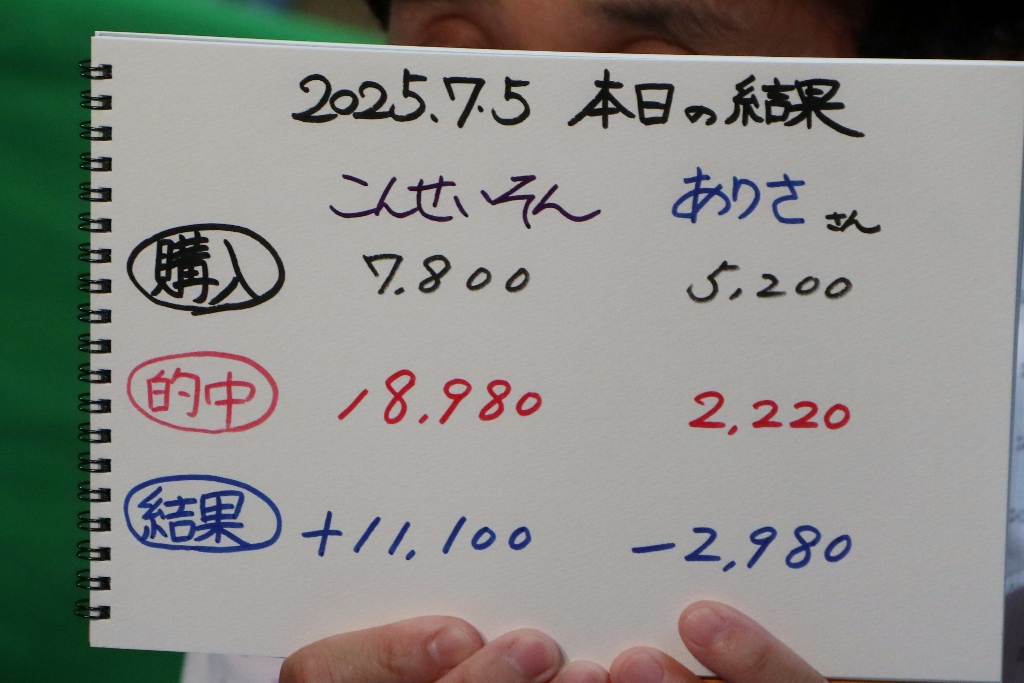 2025.7.5 本日の結果
こんせいそん ありささん
購入 7.800 5,200
的中 18,980 2,220
結果 +11,100 -2,980